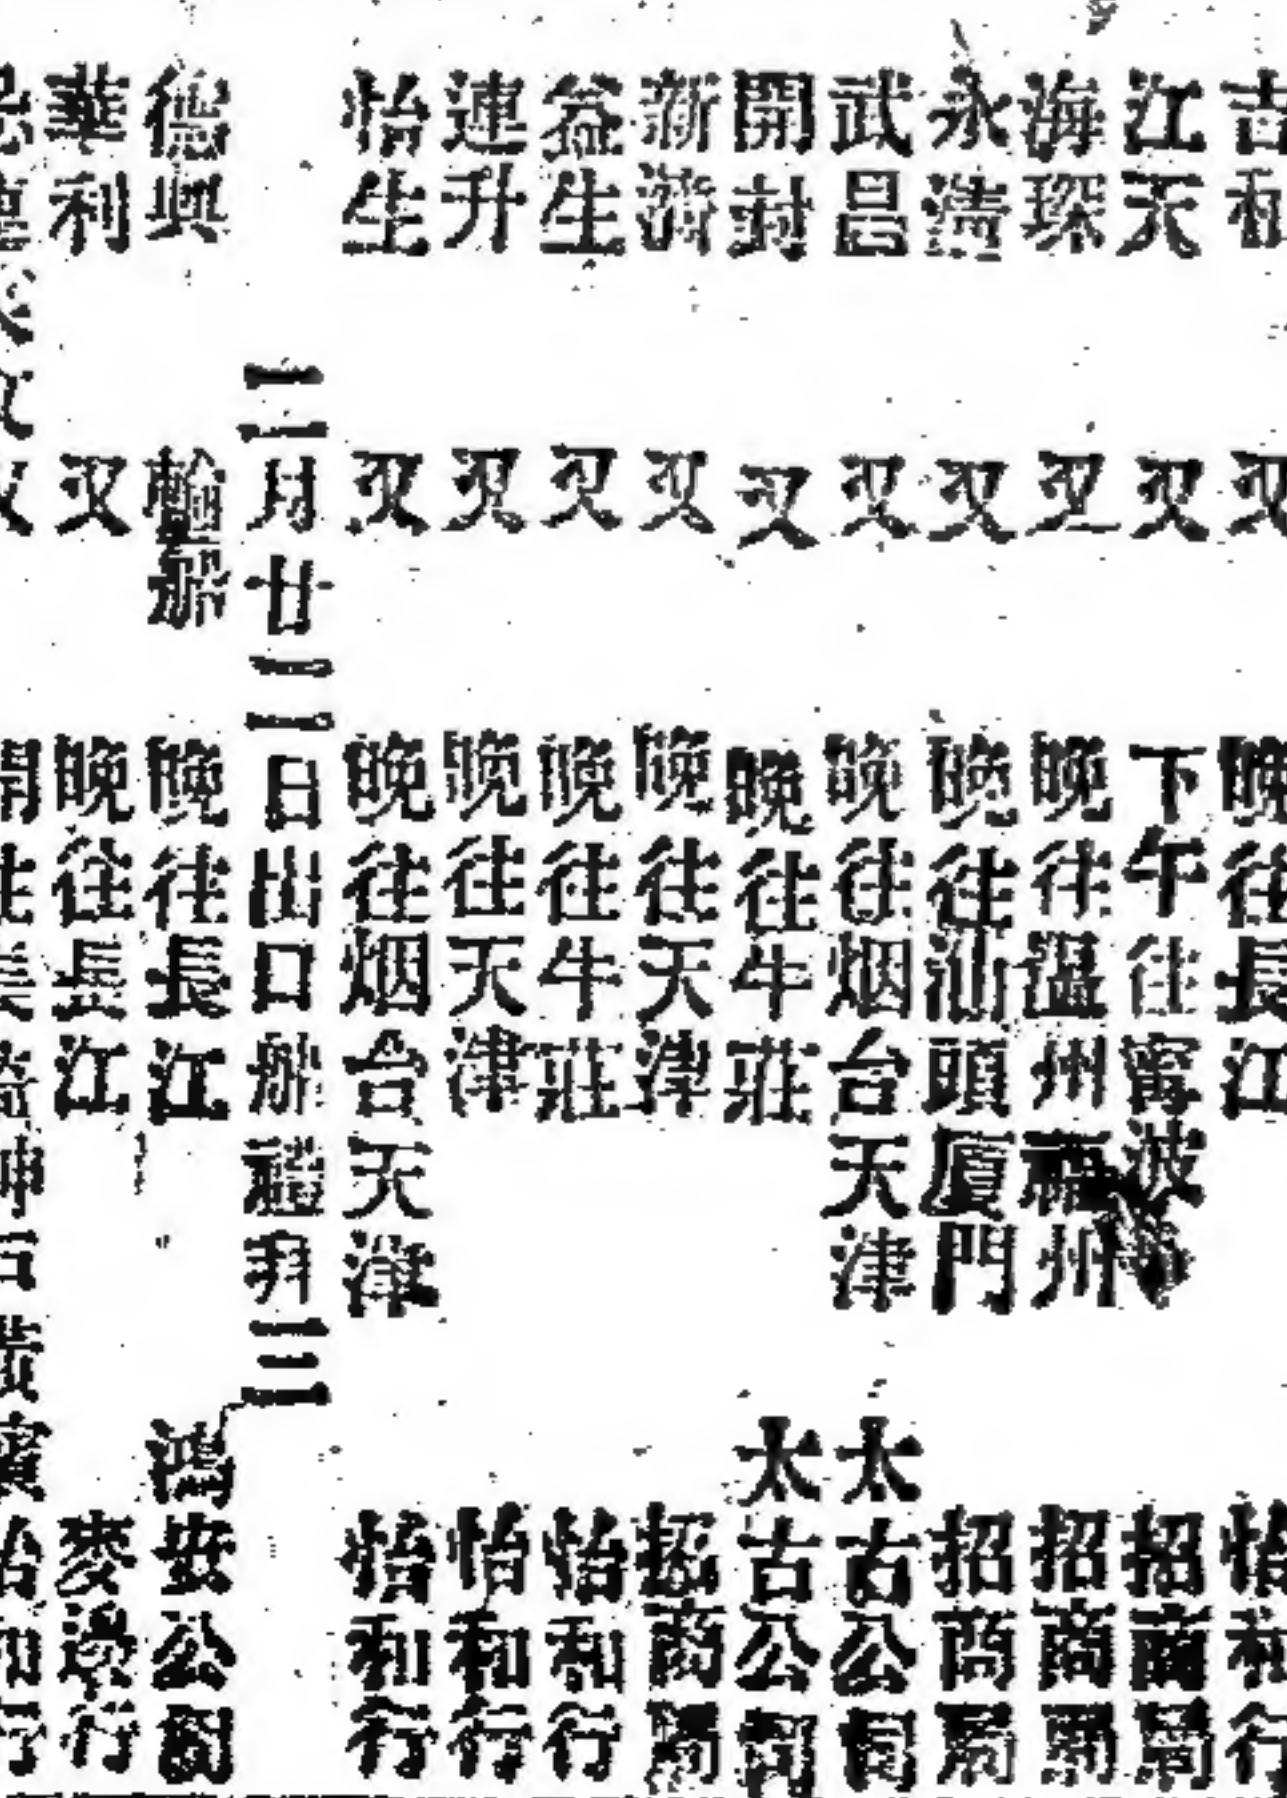 吉和 又 晚往長江 怡和行
江天 又 下午往寗波 招商局
海琛 又 晚往溫州福州 招商局
永清 又 晚往汕頭廈門 招商局
武昌 又 晚往烟台天津 太古公司
開封 又 晚往牛莊 太古公司
新濟 又 晚往天津 招商局
益生 又 晚往牛莊 怡和行
連升 又 晚往天津 怡和行
怡生 又 晚往烟台天津 怡和行
二月廿二日出口船禮拜三
德興 輪船 晚往長江 鴻安公司
華利 又 晚往長江 麥邊行